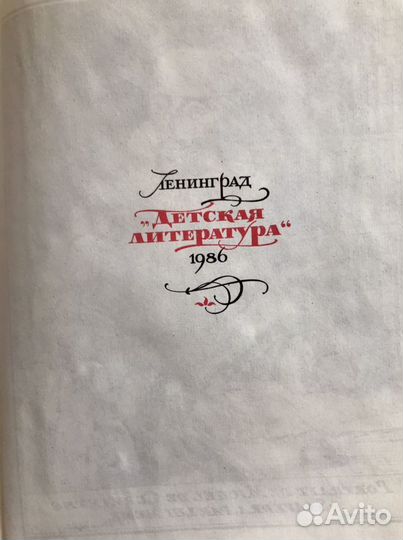 Ленинград
„Детская
литература“
1986
Avito